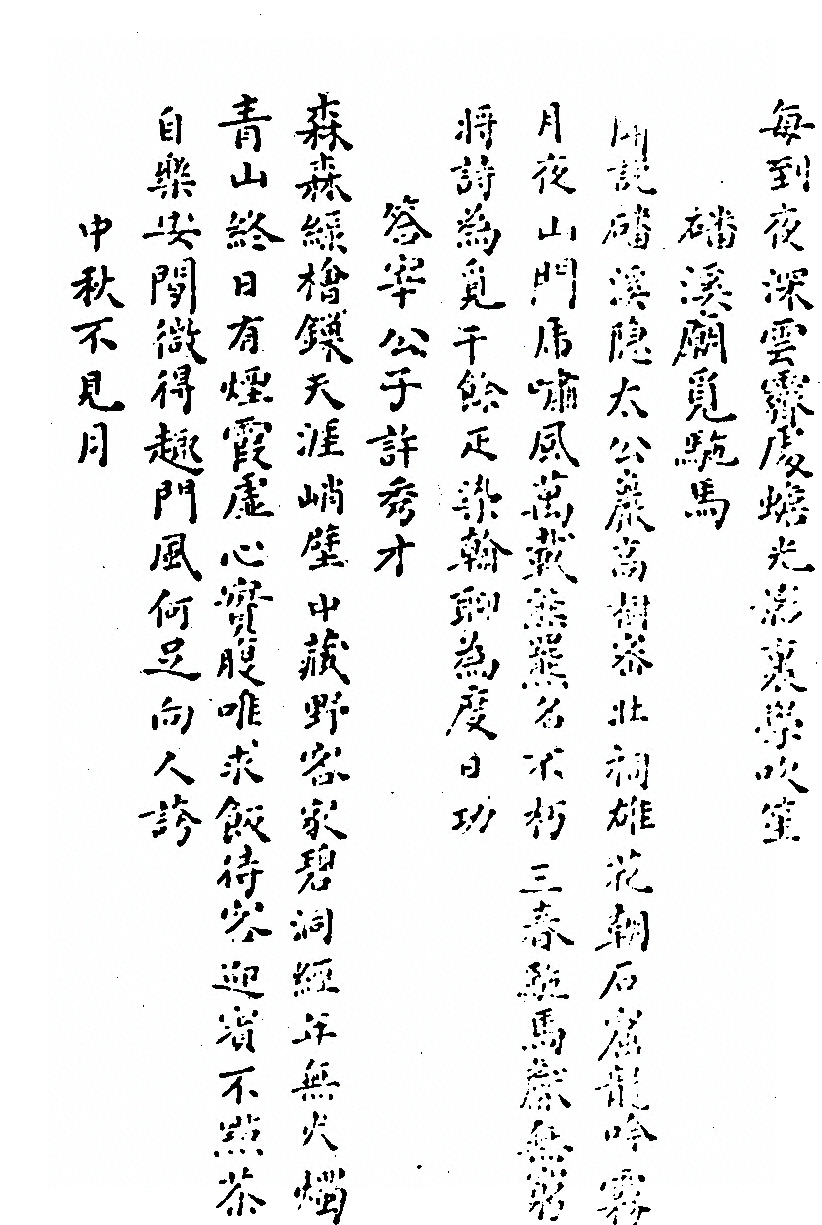 每到夜深雲霽處蟾光影裏學吹笙
磻溪廟覓馳馬
聞說磻溪隱太公巖高樹密壯祠雄花朝石窟龍吟霧
月夜山門虎嘯風萬載熊羆名不朽三春馳馬獻無窮
將詩為覓千餘疋染翰聊為度日功
答宰公子許秀才
森森綠檜鏁天涯峭壁中藏野客家碧洞經年無火燭
青山終日有煙霞虛心實腹唯求飯待客迎賓不點茶
自樂安閑微得趣門風何足向人誇
中秋不見月